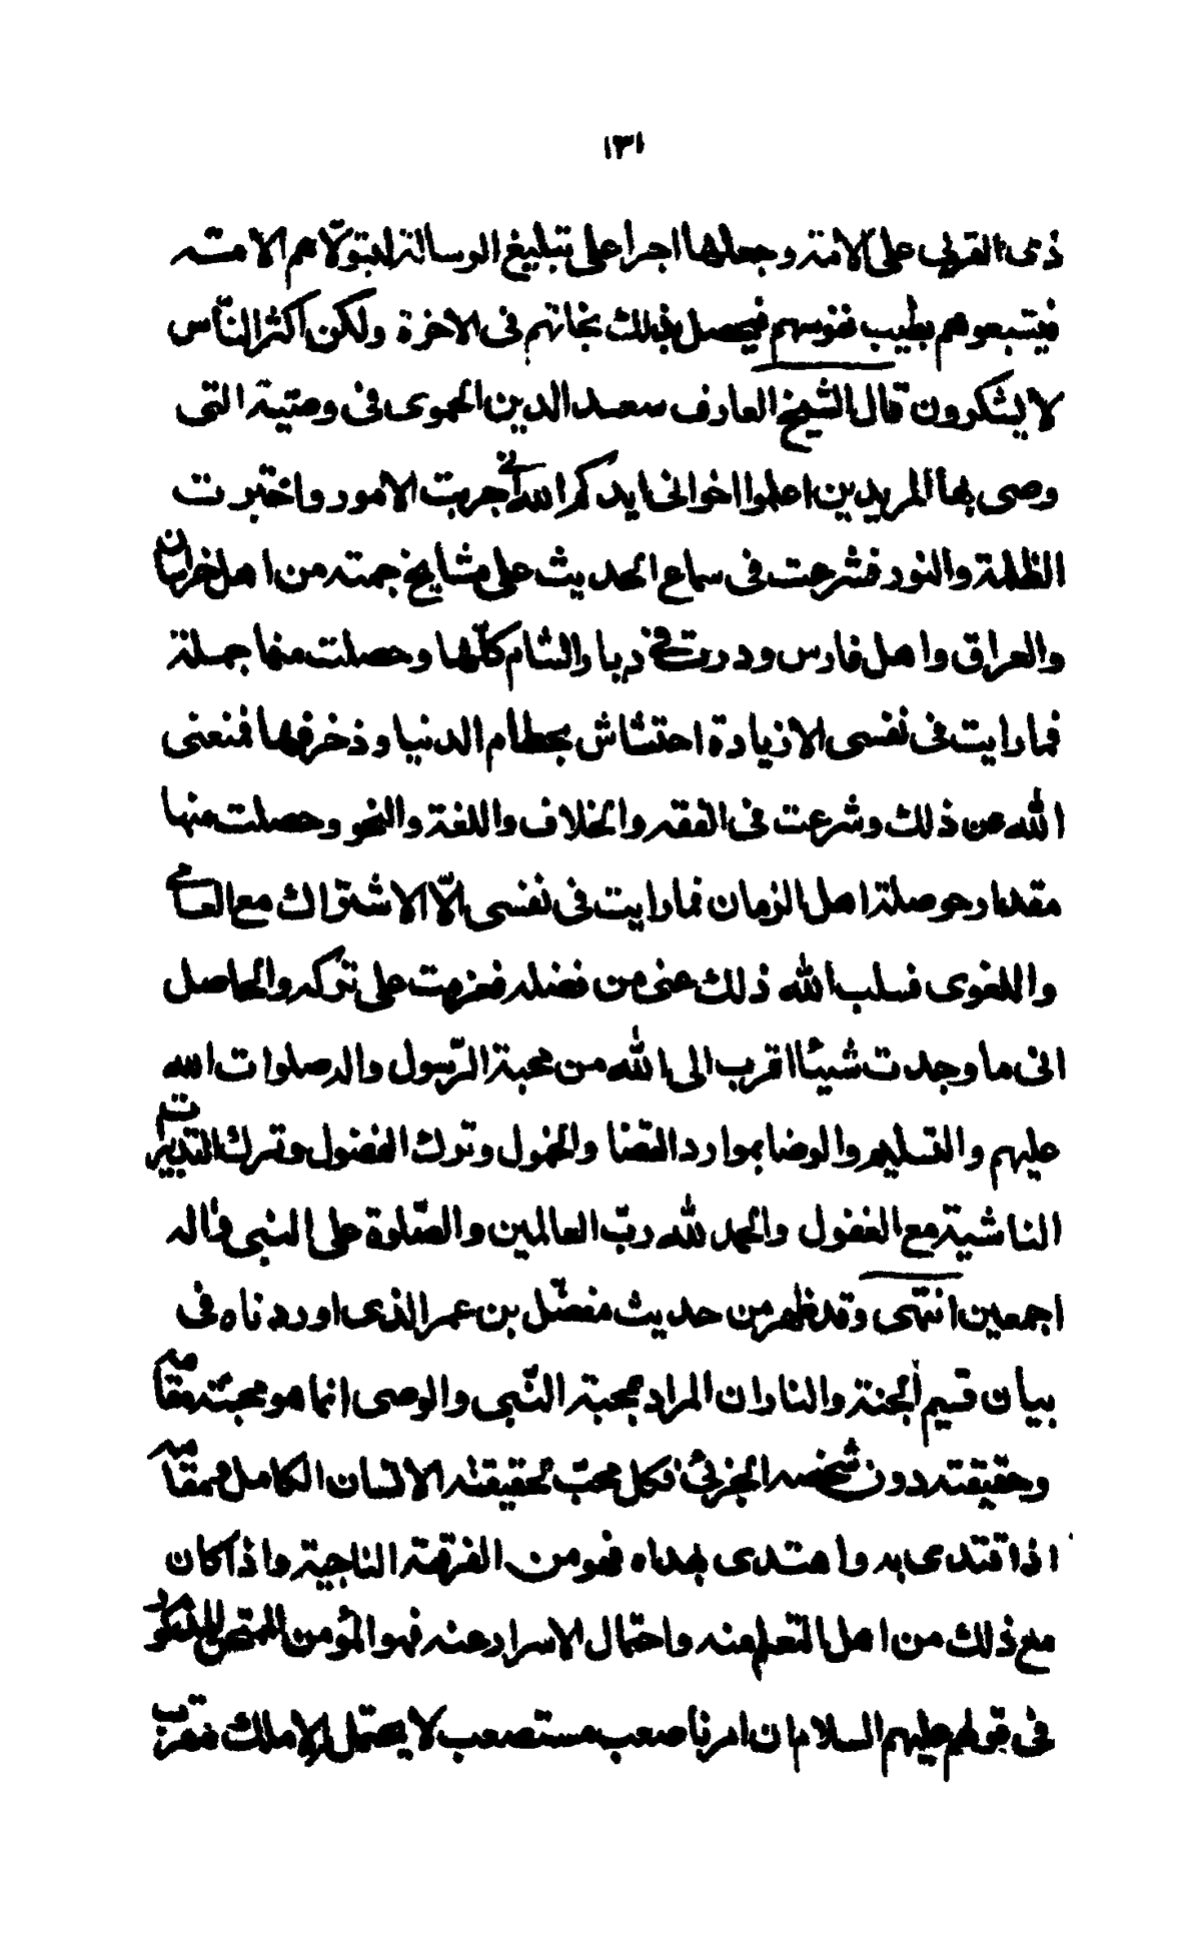 ١٣١
ذى القربى على الامة وجعلها اجرا على تبليغ الرسالة ليتولاهم الامة
فيتبعوهم بطيب نفوسهم فيحصل بذلك نجاتهم فى الاخرة ولكن اكثر النّاس
لا يشكرون قال الشيخ العارف سعد الدين الحموى فى وصية التى
وصى بها المريدين اعلموا اخوانى ايدكم الله انى جربت الامور واختبرت
الظلمة والنور فشرعت فى سماع الحديث على مشايخ جمة من اهل خراسان
والعراق واهل فارس ودرت فى ديار الشام كلّها وحصلت منها جملة
فما رايت فى نفسى الا زيادة احتشاش بحطام الدنيا وذخرفها فمنعنى
الله عن ذلك وشرعت فى الفقه والخلاف واللغة والنحو وحصلت منها
مقدار حوصلة اهل الزمان فما رايت فى نفسى الّا الاشتراك مع العامى
واللغوى فسلب الله ذلك عنى من فضله فعزمت على تركه والحاصل
انى ما وجدت شيئا اقرب الى الله من محبة الرّسول واله صلوات الله
عليهم والتسليم والرضا بموارد القضا والخمول وترك الفضول وترك التدبيرات
الناشية مع الغفول والحمد لله ربّ العالمين والصّلوة على النبى واله
اجمعين انتهى وقد ظهر من حديث مفضّل بن عمر الذى اوردناه فى
بيان قسيم الجنة والنار ان المراد بمحبة النّبى والوصى انما هو محبّة مقامه
وحقيقته دون شخصه الجزئى فكل محبّ لحقيقة الانسان الكامل فمقامه
اذا قتدى به واهتدى بهداه فهو من الفرقة الناجية واذا كان
مع ذلك من اهل التعلم عنه واحتمال الاسرار عنه فهو المؤمن الممتحن المذكور
فى قولهم عليهم السلام ان امرنا صعب مستصعب لا يحتمل الا ملك مقرب